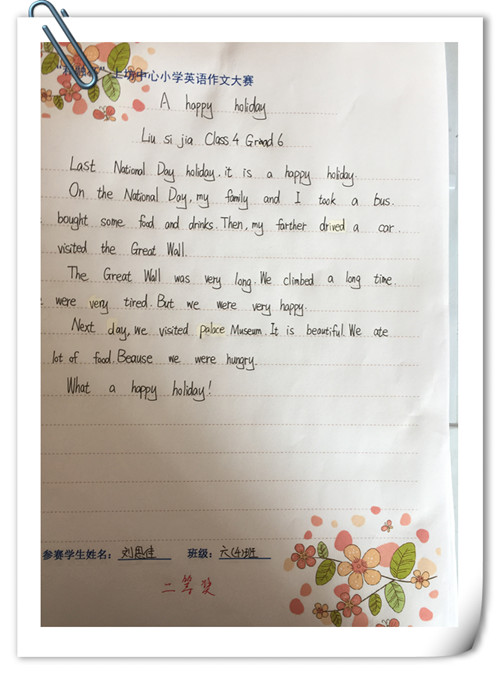 上坊中心小学英语作文大赛
A happy holiday
Liu si jia Class 4 Grad 6
Last National Day holiday. it is a happy holiday.
On the National Day, my family and I took a bus.
bought some food and drinks. Then, my farther drived a car.
visited the Great Wall.
The Great Wall was very long. We climbed a long time.
were very tired. But we were very happy.
Next day, we visited palace Museum. It is beautiful. We ate
lot of food. Beause we were hungry.
What a happy holiday!
参赛学生姓名： 刘思佳 班级： 六(4)班
二等奖